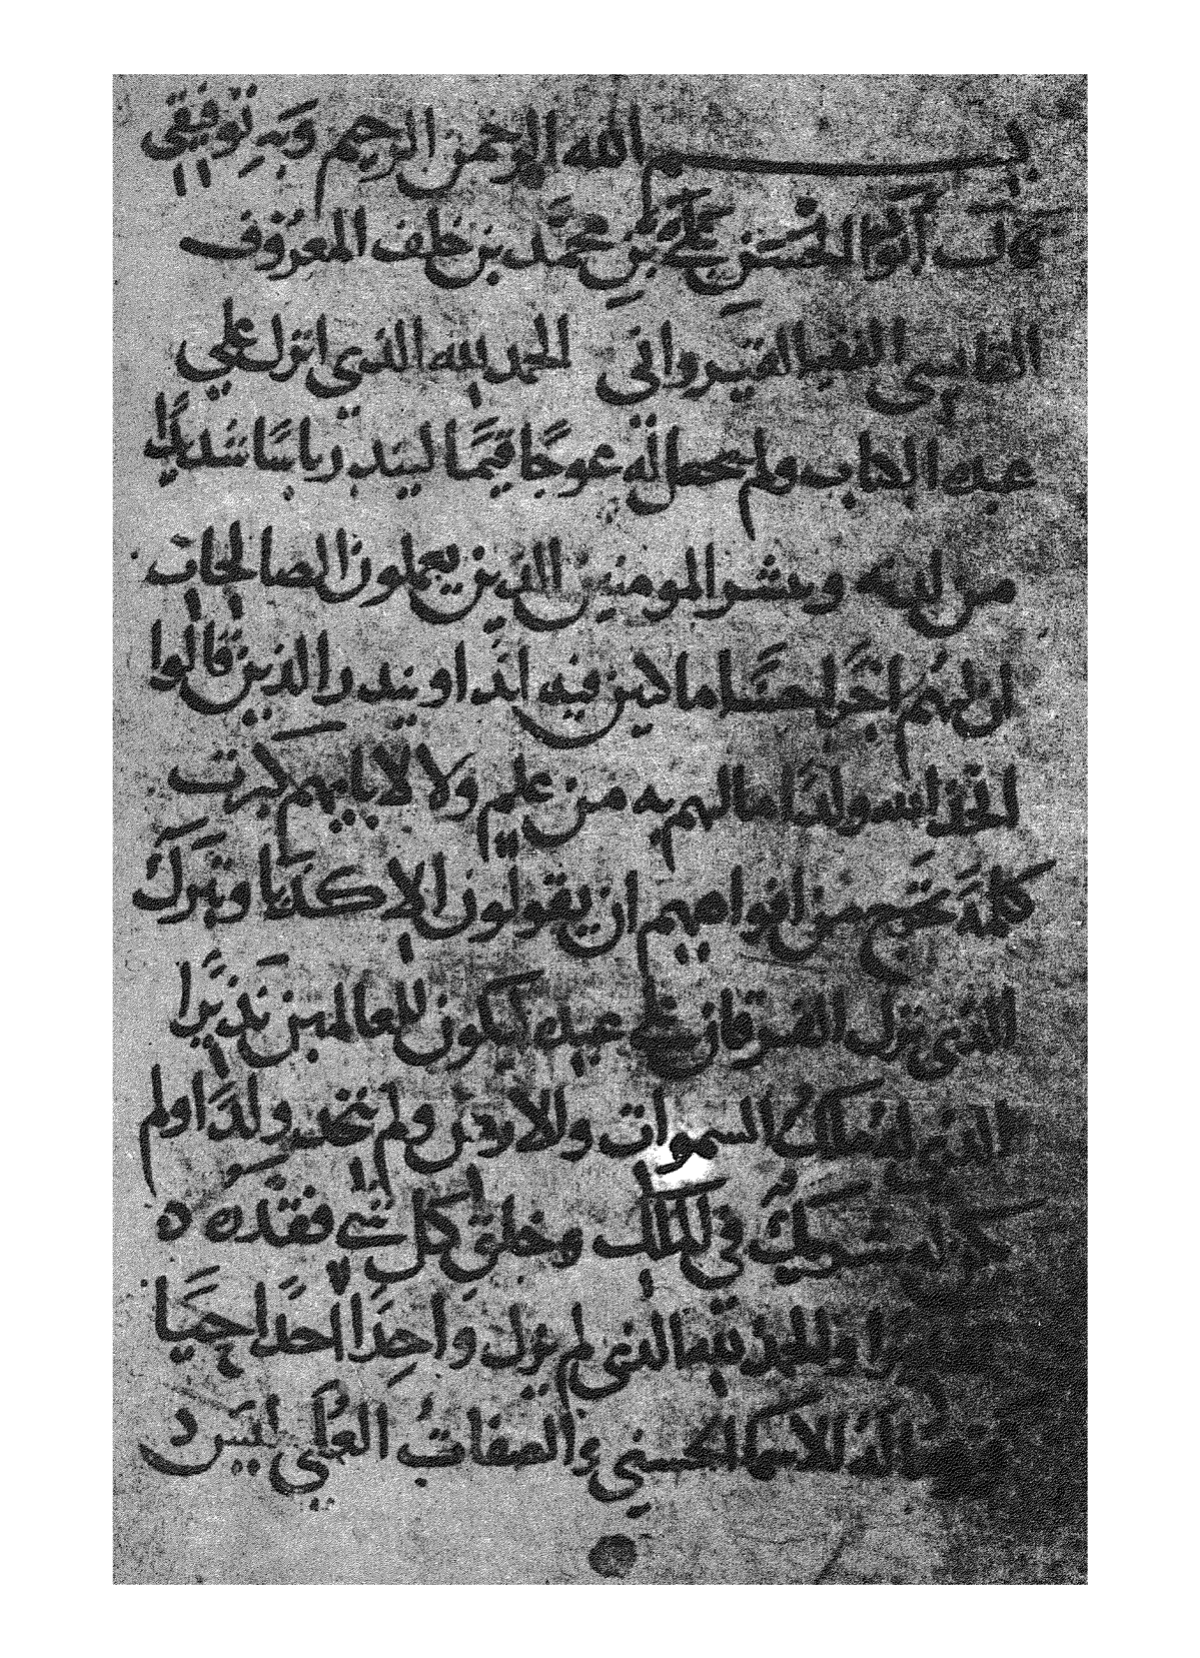 بسم الله الرحمن الرحيم وبه توفيقي
قال أبو الحسن علي بن محمد بن خلف المعروف
القابسي الفقيه القيرواني الحمد لله الذي انزل علي
عبده الكتاب ولم يجعل له عوجا قيما لينذر باسا شديدا
من لدنه ويبشر المومنين الذين يعملون الصالحات
ان لهم اجرا حسنا ماكثين فيه ابدا وينذر الذين قالوا
اتخذ الله ولدا ما لهم به من علم ولا لابايهم كبرت
كلمة تخرج من افواههم ان يقولون الا كذبا وتبرك
الذي نزل الفرقان علي عبده ليكون للعالمين نذيرا
الذي له ملك السموات والارض ولم يتخذ ولدا ولم
له شريك في الملك وخلق كل شي فقدره ه
والحمد لله الذي لم يزل واحدا احدا حيا
له الاسما الحسني والصفات العلي ليس د